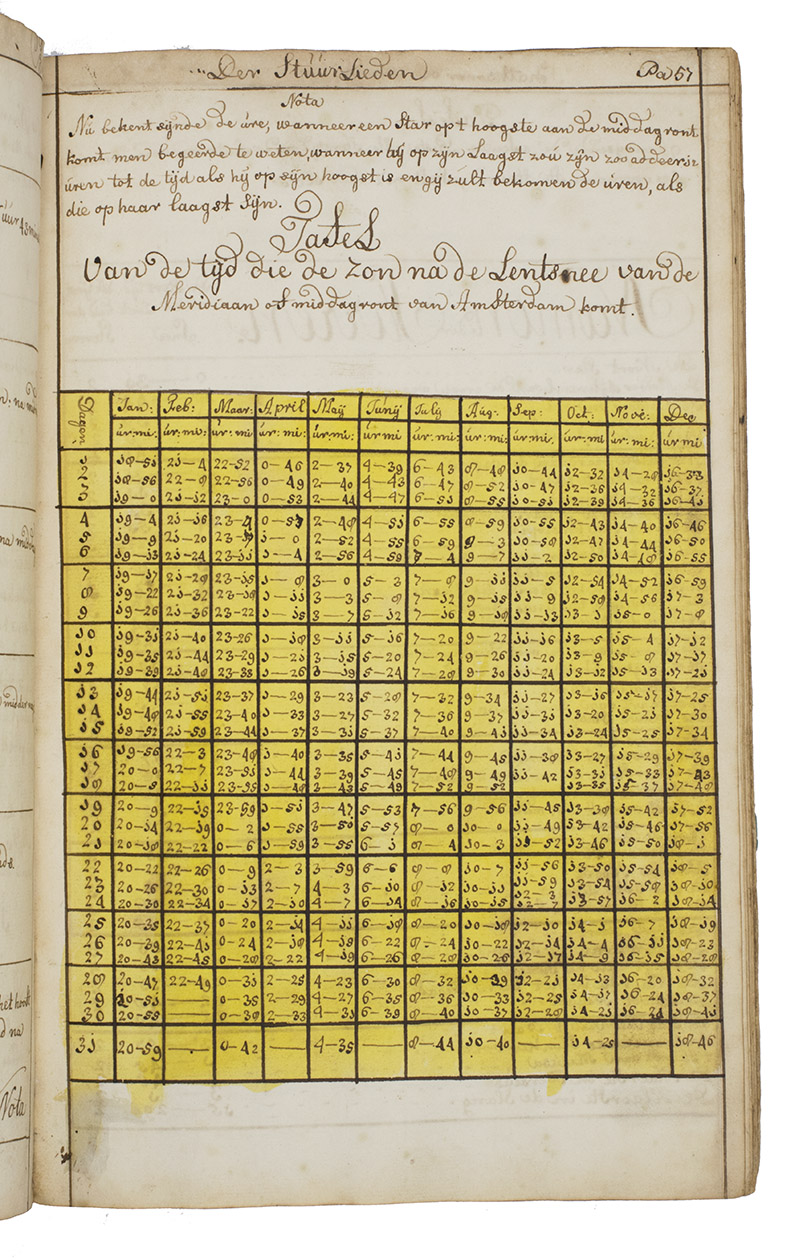 Der Stuurlieden Pa 57
Nota
Nu bekent sijnde de ure, wanneer een Star op t hoogste aan de middagront
komt men begeerde te weten, wanneer hij op zijn Laagst zou zijn zoo addeer 12
uren tot de tijd als hij op sijn hoogst is en gij zult bekomen de uren, als
die op haar laagst sijn.
Tafel
Van de tijd die de zon na de Lentsnee van de
Meridiaan of middagront van Amsterdam komt.
Dagen: Jan: Feb: Maar: April Maij Junij Julij Aug: Sep: Oct: Nove: Dec
ur mi: ur: mi: ur: mi ur: mi: ur mi: ur mi ur: mi: ur: mi: ur mi: ur: mi: ur: mi: ur mi
1 18-51 21-4 22-52 0-46 2-37 4-39 6-43 8-48 10-44 12-32 14-28 16-33
2 18-56 21-8 22-56 0-49 2-40 4-43 6-47 8-52 10-47 12-36 14-32 16-37
3 19-0 21-12 23-0 0-53 2-44 4-47 6-51 8-55 10-51 12-39 14-36 16-41
4 19-4 21-16 23-4 0-57 2-48 4-51 6-55 8-59 10-55 12-43 14-40 16-46
5 19-9 21-20 1-0 2-52 4-55 6-59 9-3 10-58 12-47 14-44 16-50
6 19-13 21-24 23-11 1-4 2-56 4-59 7-4 9-7 11-2 12-50 14-48 16-55
7 19-17 21-28 23-15 1-8 3-0 5-3 7-8 9-11 11-5 12-54 14-52 16-59
8 19-22 21-32 23-18 1-11 3-3 5-8 7-12 9-15 11-9 12-58 14-56 17-3
9 19-26 21-36 23-22 1-15 3-7 5-12 7-16 9-18 11-13 13-1 15-0 17-8
10 19-31 21-40 23-26 1-18 3-11 5-16 7-20 9-22 11-16 13-5 15-4 17-12
11 19-35 21-44 23-29 1-21 3-15 5-20 7-24 9-26 11-20 13-9 15-8 17-17
12 19-39 21-48 23-33 1-26 3-19 5-24 7-28 9-30 11-24 13-12 15-12 17-21
13 19-44 21-51 23-37 1-29 3-23 5-28 7-32 9-34 11-27 13-16 15-17 17-25
14 19-48 21-55 23-40 1-33 3-27 5-32 7-36 9-37 11-31 13-20 15-21 17-30
15 19-52 21-59 23-44 1-37 3-31 5-37 7-40 9-41 11-34 13-24 15-25 17-34
16 19-56 22-3 23-48 1-40 3-35 5-41 7-44 9-45 11-38 13-27 15-29 17-39
17 20-0 22-7 23-51 1-44 3-39 5-45 7-48 9-49 11-42 13-31 15-33 17-43
18 20-5 22-11 23-55 1-48 3-43 5-49 7-52 9-52 13-35 15-37 17-48
19 20-9 22-15 23-59 1-51 3-47 5-53 7-56 9-56 11-45 13-38 15-42 17-52
20 20-14 22-19 0-2 1-55 3-50 5-57 8-0 10-0 11-49 13-42 15-46 17-56
21 20-18 22-22 0-6 1-59 3-55 6-1 8-4 10-3 11-52 13-46 15-50 18-1
22 20-22 22-26 0-9 2-3 3-59 6-6 8-8 10-7 11-56 13-50 15-54 18-5
23 20-26 22-30 0-13 2-7 4-3 6-10 8-12 10-11 11-59 13-54 15-58 18-10
24 20-30 22-34 0-17 2-10 4-7 6-14 8-16 10-15 12-3 13-57 16-2 18-14
12-7
25 20-35 22-37 0-20 2-14 4-11 6-18 8-20 10-18 12-10 14-1 16-7 18-19
26 20-39 22-41 0-24 2-18 4-15 6-22 8-24 10-22 12-14 14-4 16-11 18-23
27 20-43 22-45 0-28 2-22 4-19 6-26 8-28 10-26 12-17 14-9 16-15 18-28
28 20-47 22-49 0-31 2-25 4-23 6-30 8-32 10-29 12-21 14-13 16-20 18-32
29 20-51 — 0-35 2-29 4-27 6-35 8-36 10-33 12-25 14-17 16-24 18-37
30 20-55 — 0-38 2-33 4-31 6-39 8-40 10-37 12-28 14-21 16-24 18-41
31 20-59 — 0-42 — 4-35 — 8-44 10-40 — 14-25 — 18-46
Nota